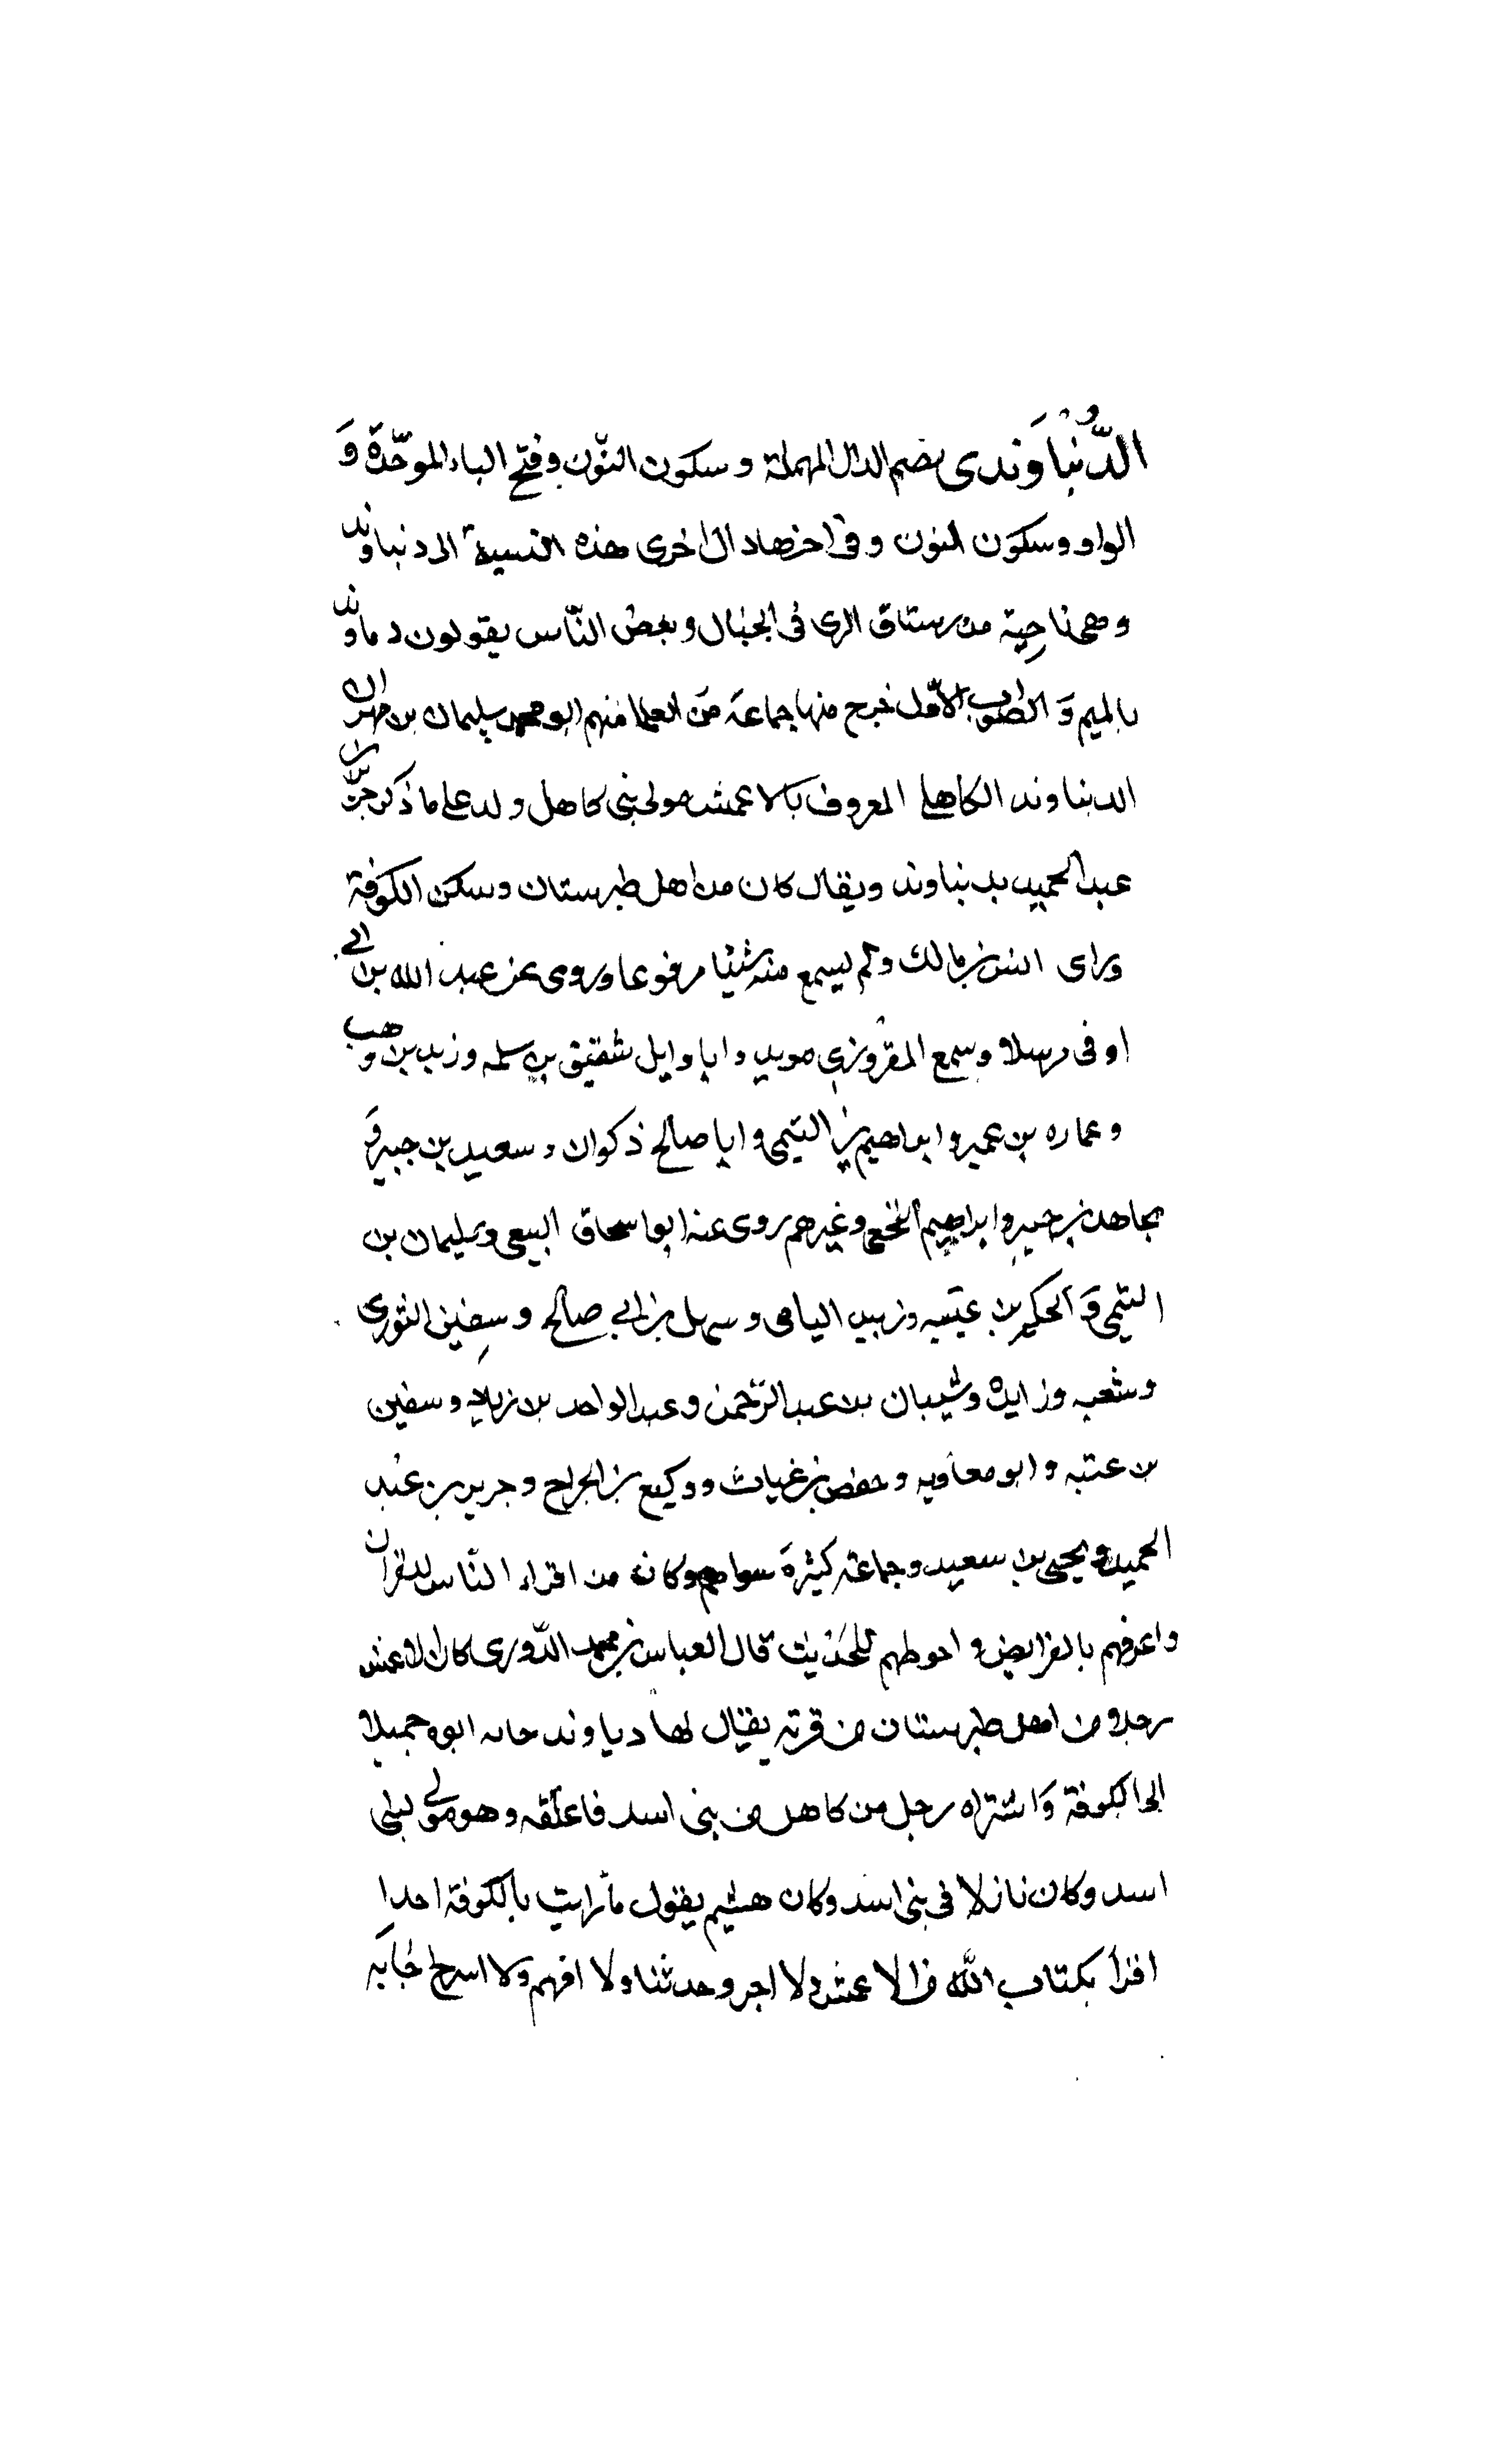 الدُّنباوَندى بضم الدال المهملة وسكون النّون وفتح الباء الموحّدة وَ
الواو وسكون النون وفى اخرها دال اخرى هذه النسبة الى دنباوند
وهى ناحِية من رستاق الرى فى الجبال وبعض النّاس يقولون دماوند
بالميم وَ الصواب الاوّل خرج منها جماعة مَن العلما منهم ابو محمد سليمان بن مهران
الدنباوند الكاهلى المعروف بالاعمش مولى بنى كاهل ولد على ما ذكر جرير بن
عبد الحميد بدنباوند ويقال كان من اهل طبرستان وسكن الكوفة
وراى انس بن مالك ولم يسمع منه شيئا مرفوعا وروى عن عبد الله بن ابى
اوفى مرسلا وسمع المقرور بن سويد وابا وايل شقيق بن سلمه وزيد بن وهب
وعماره بن عمير وابراهيم بن التيمى وابا صالح ذكوان وسعيد بن جبير وَ
مجاهد بن جبير وابراهيم النخعى وغيرهم روى عنه ابو اسحاق السبيعى وسليمان بن
التيمى وَ الحكم بن عتيبه وزبيد اليامى وسهل بن ابى صالح وسفين الثورى
وشعبه وزايده وشيبان بن عبد الرّحمن وعبد الواحد بن زياد وسفين
بن عتبه وابو معاويه وحفص بن غياث ووكيع بن الجراح وجرير بن عبد
الحميد ويحيى بن سعيد وجماعة كثيرة سواهم وكان من اقراء النّاس للقران
واعرفهم بالفرايض واحوطهم للحديث قال العباس بن محمد الدّورى كان الاعمش
رجلا من اهل طبرستان من قرية يقال لها دباوند جاء ابوه حميلا
الى الكوفة وَاشتراه رجل من كاهل من بنى اسد فاعتقه وهو مولى لبنى
اسد وكان نازلا فى بنى اسد وكان هشيم يقول ما رايت بالكوفة احدا
اقرأ بكتاب الله من الاعمش ولا اجر وحدثنا ولا افهم ولا اسرع اجابَه